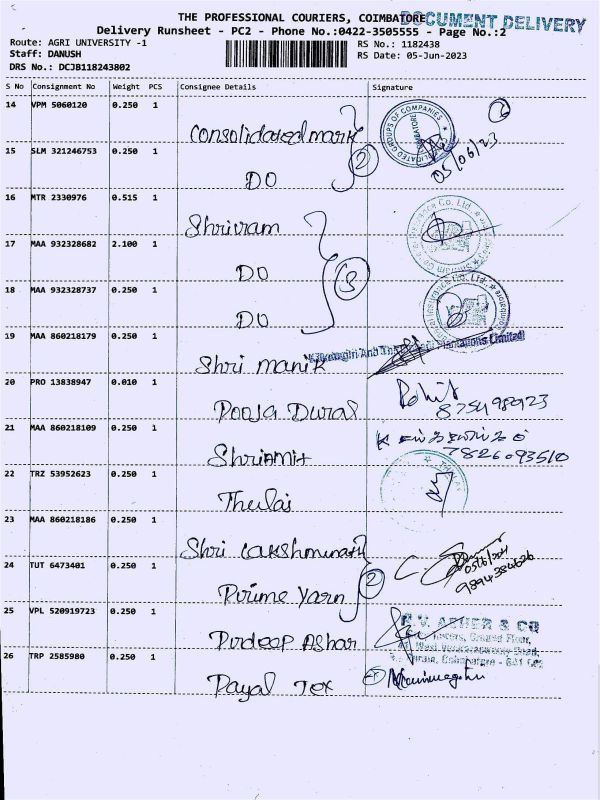 THE PROFESSIONAL COURIERS, COIMBATORE
DOCUMENT DELIVERY
Delivery Runsheet - PC2 - Phone No.:0422-3505555 - Page No.:2
Route: AGRI UNIVERSITY -1
RS No.: 1182438
Staff: DANUSH
RS Date: 05-Jun-2023
DRS No.: DCJB118243802
S No Consignment No Weight PCS Consignee Details Signature
14 VPM 5060120 0.250 1
Consolidated mark
05/06/23
15 SLM 321246753 0.250 1
2
DO
16 MTR 2330976 0.515 1
Shriram
17 MAA 932328682 2.100 1
DO
3
18 MAA 932328737 0.250 1
DO
19 MAA 860218179 0.250 1
Shri Manik
Plantations Limited
20 PRO 13838947 0.010 1
Pooja Durai
Rohit
21 MAA 860218109 0.250 1
7826093510
22 TRZ 53952623 0.250 1
Thulai
23 MAA 860218186 0.250 1
Shri Lakshminath
24 TUT 6473401 0.250 1
2
9894384626
Prime Yarn
25 VPL 520919723 0.250 1
Purdeep Ashar
V. ASHER & CO
26 TRP 2585980 0.250 1
Payal Tex